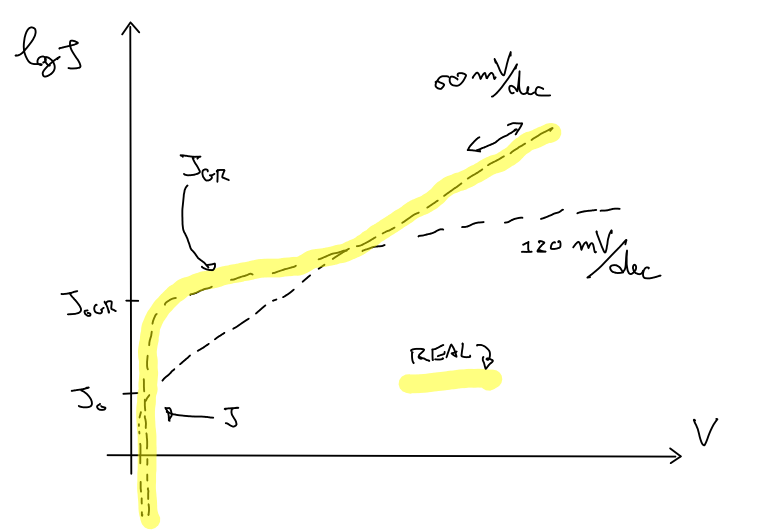 log J
60 mV/dec
J_GR
120 mV/dec
J_0GR
REAL
J_0
J
V